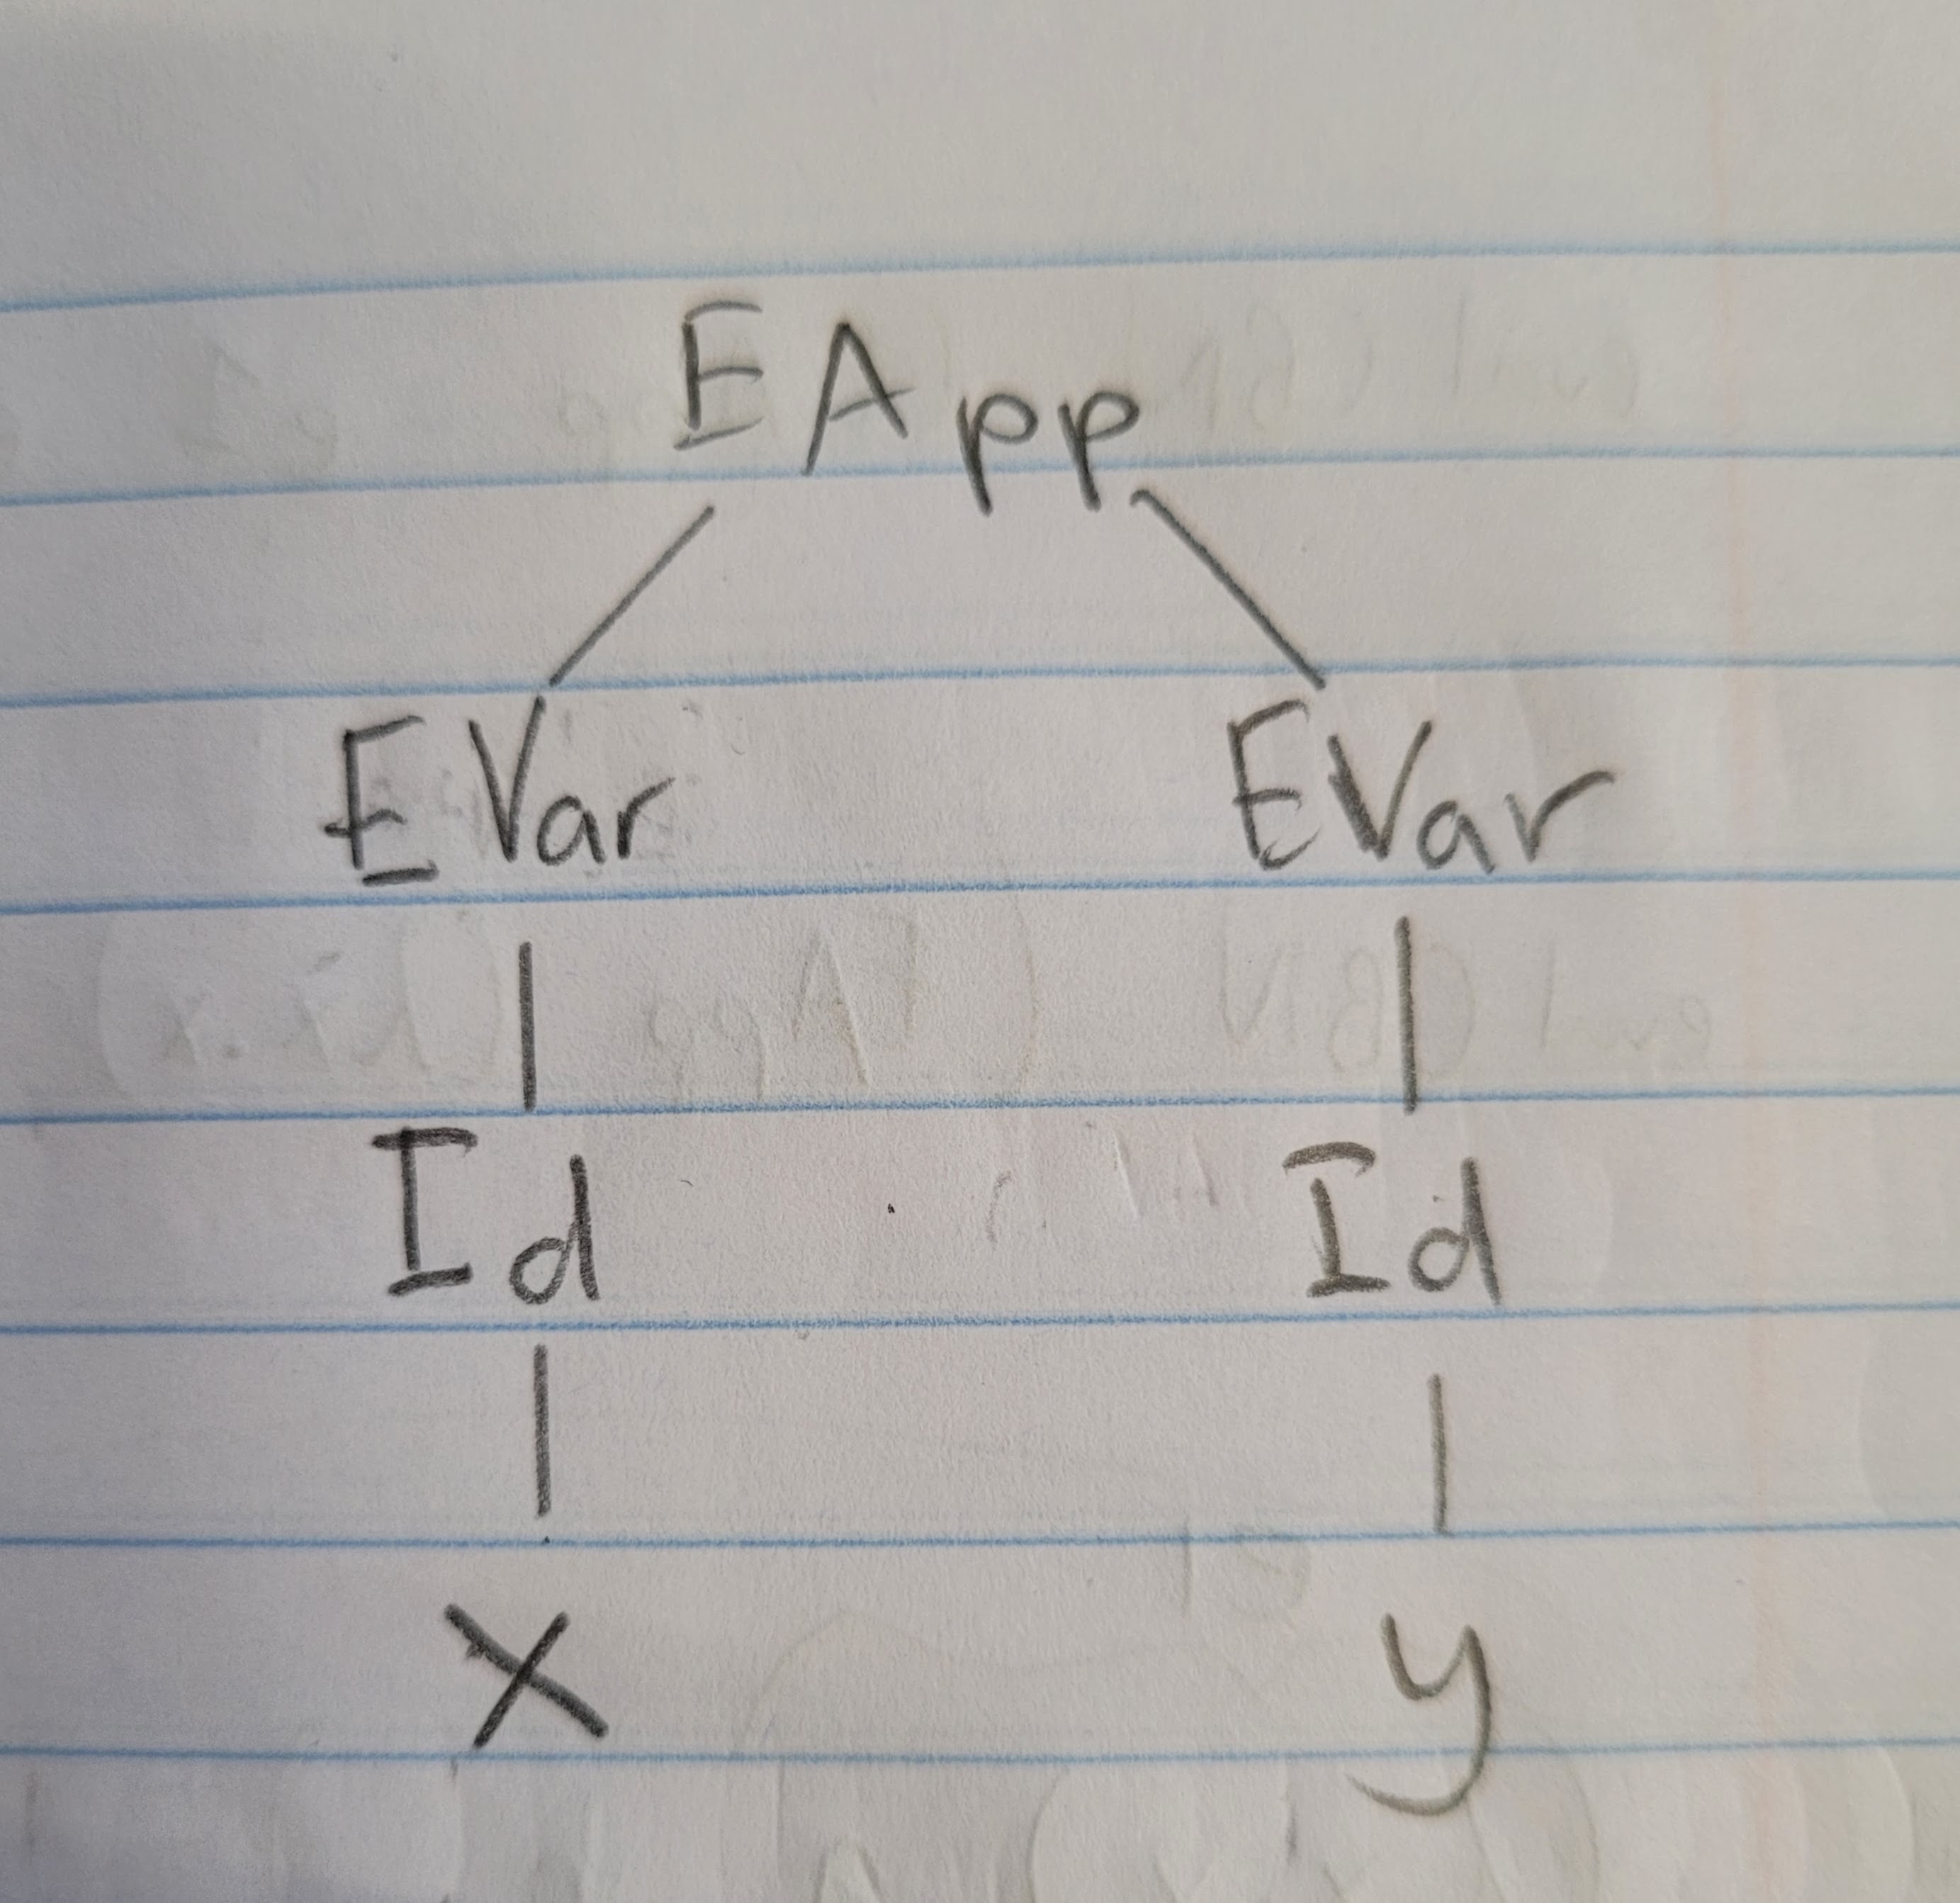 EApp
EVar EVar
Id Id
x y